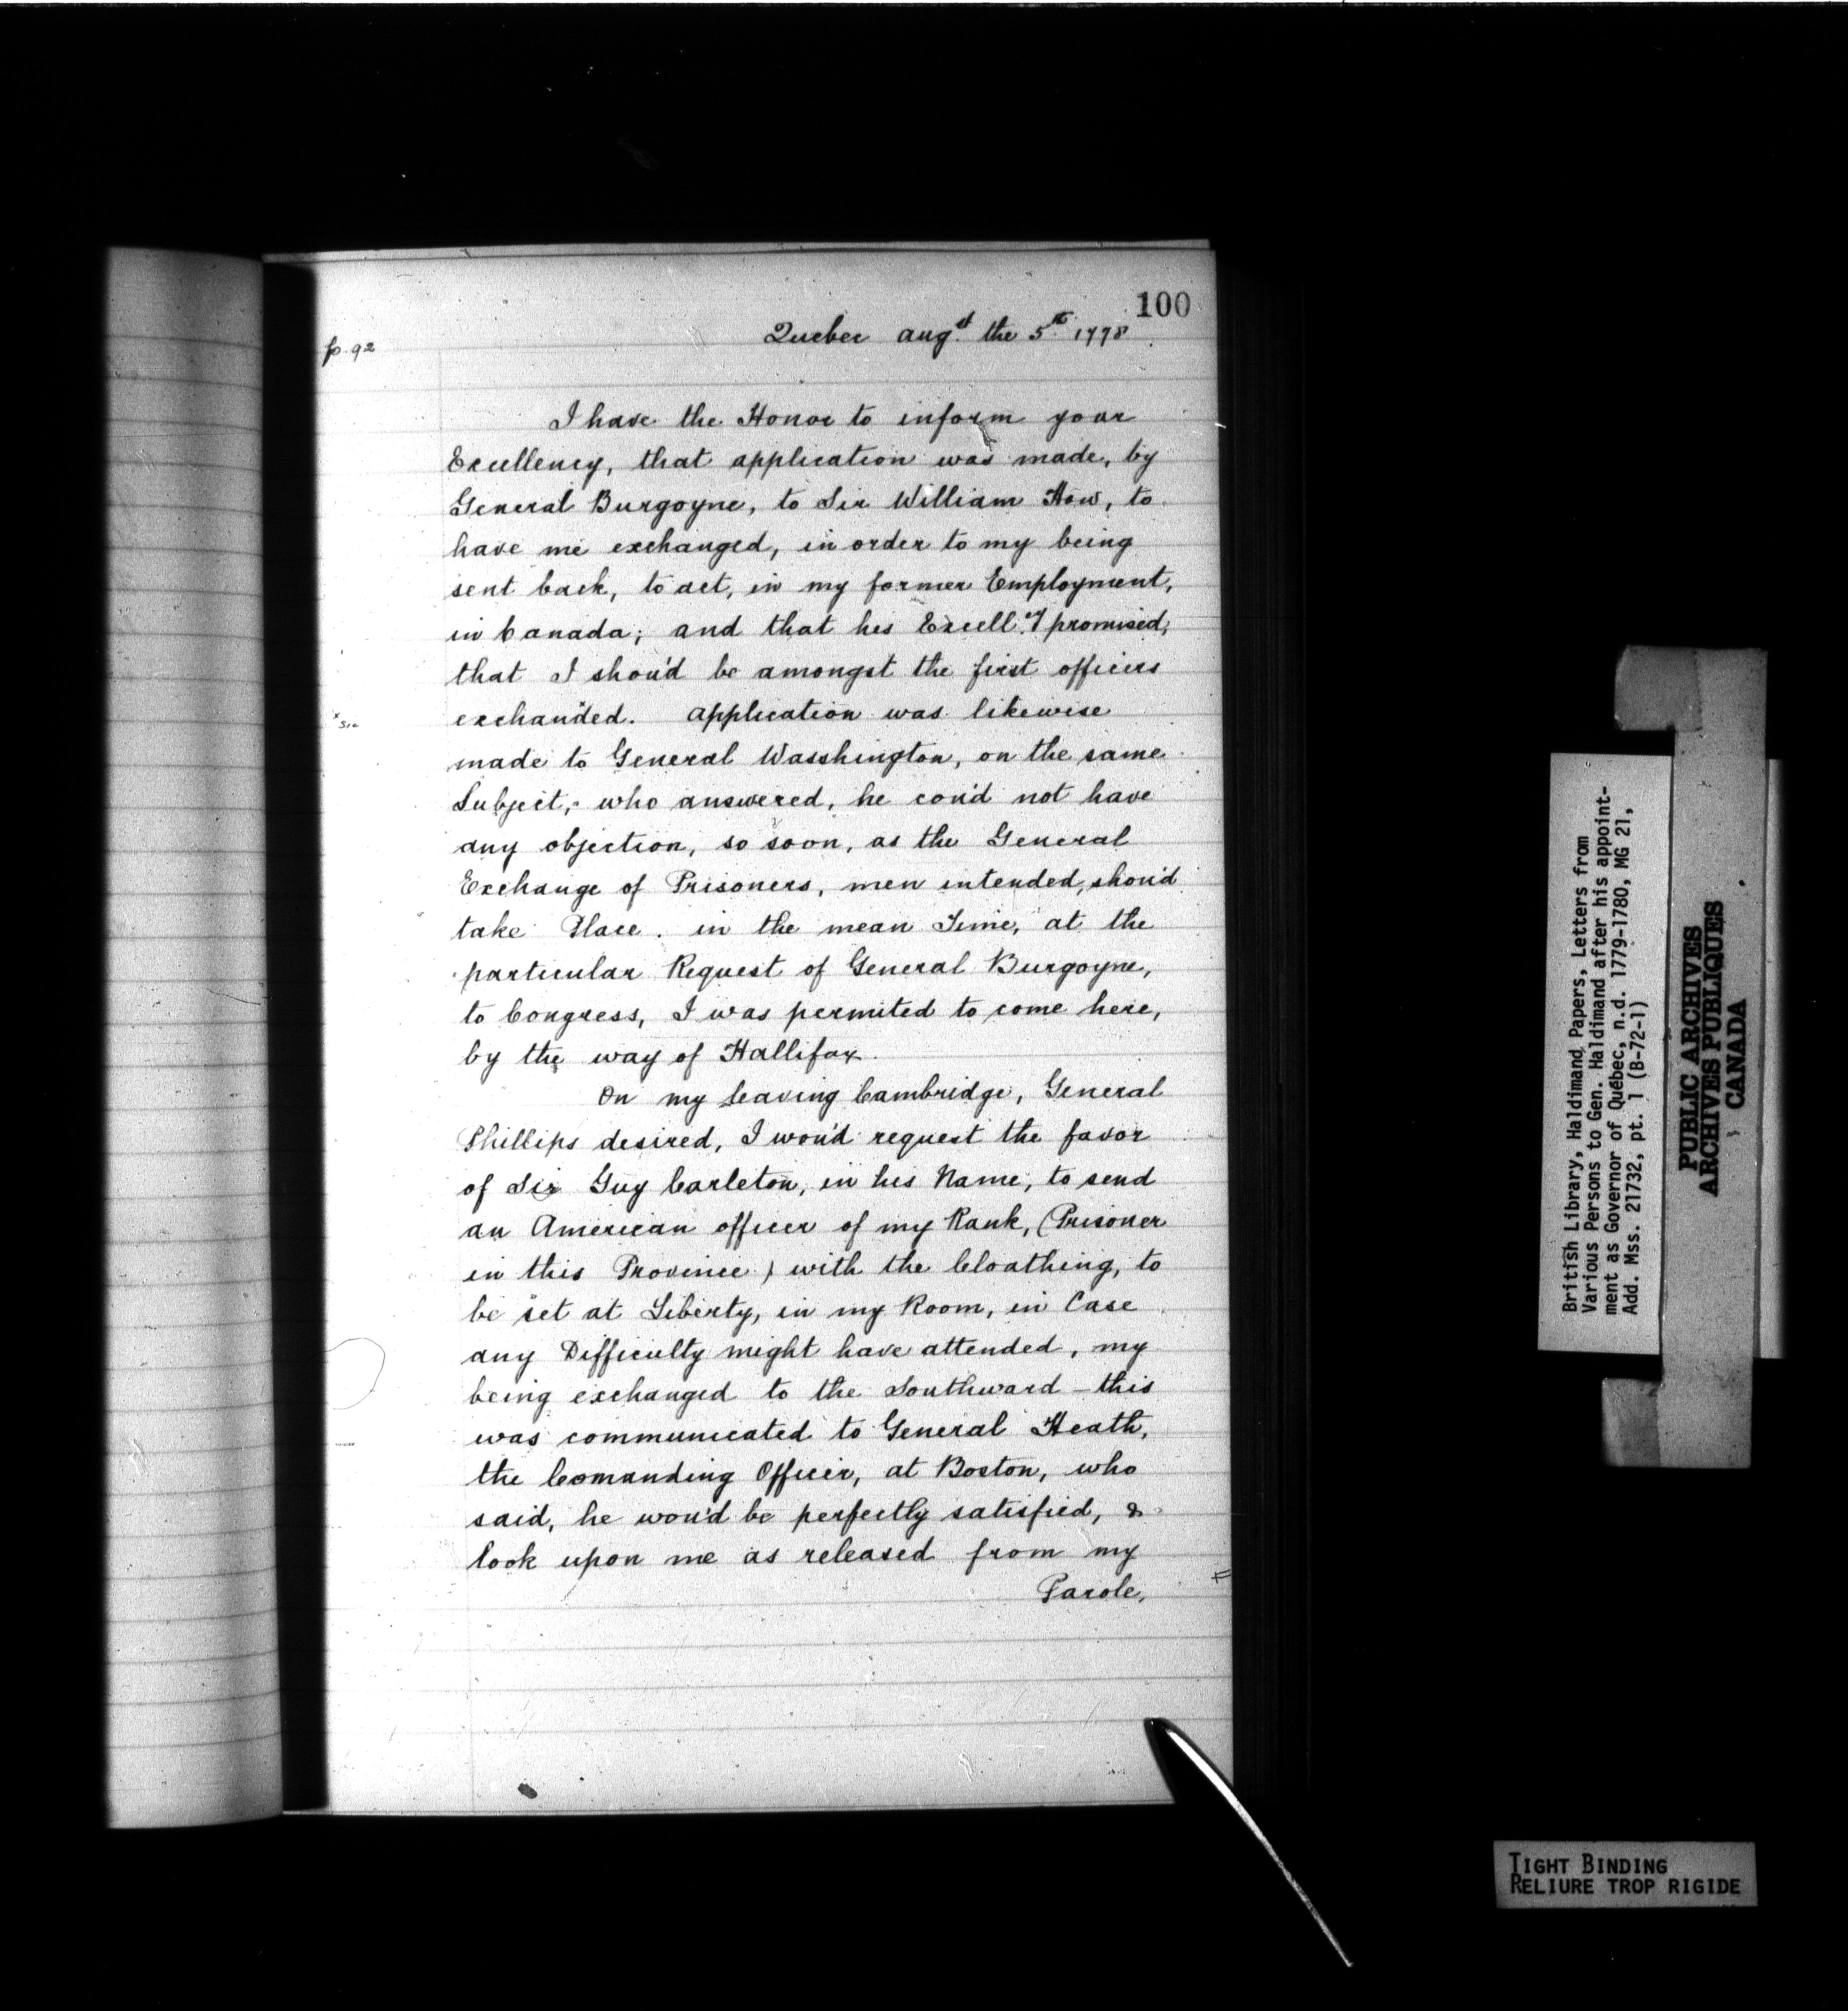 100
Quebec augst. the 5th. 1778
p. 92
I have the Honor to inform your
Excellency, that application was made, by
General Burgoyne, to Sir William How, to
have me exchanged, in order to my being
sent back, to act, in my former Employment,
in Canada; and that his Excell.cy promised,
that I shou'd be amongst the first officers
x sic
exchanded. application was likewise
made to General Wasshington, on the same
Subject, who answered, he cou'd not have
any objection, so soon, as the General
Exchange of Prisoners, men intended, shou'd
take Place. in the mean Time, at the
particular Request of General Burgoyne,
to Congress, I was permited to come here,
by the way of Hallifax.
On my leaving Cambridge, General
Phillips desired, I wou'd request the favor
of Sir Guy Carleton, in his Name, to send
an American officer of my Rank, (Prisoner
in this Province) with the Cloathing, to
be set at Liberty, in my Room, in Case
any Difficulty might have attended, my
being exchanged to the Southward – this
was communicated to General Heath,
the Comanding Officer, at Boston, who
said, he wou'd be perfectly satisfied, &
look upon me as released from my
Parole,
British Library, Haldimand Papers, Letters from
Various Persons to Gen. Haldimand after his appoint-
ment as Governor of Québec, n.d. 1779-1780, MG 21,
Add. Mss. 21732, pt. 1 (B-72-1)
PUBLIC ARCHIVES
ARCHIVES PUBLIQUES
CANADA
TIGHT BINDING
RELIURE TROP RIGIDE